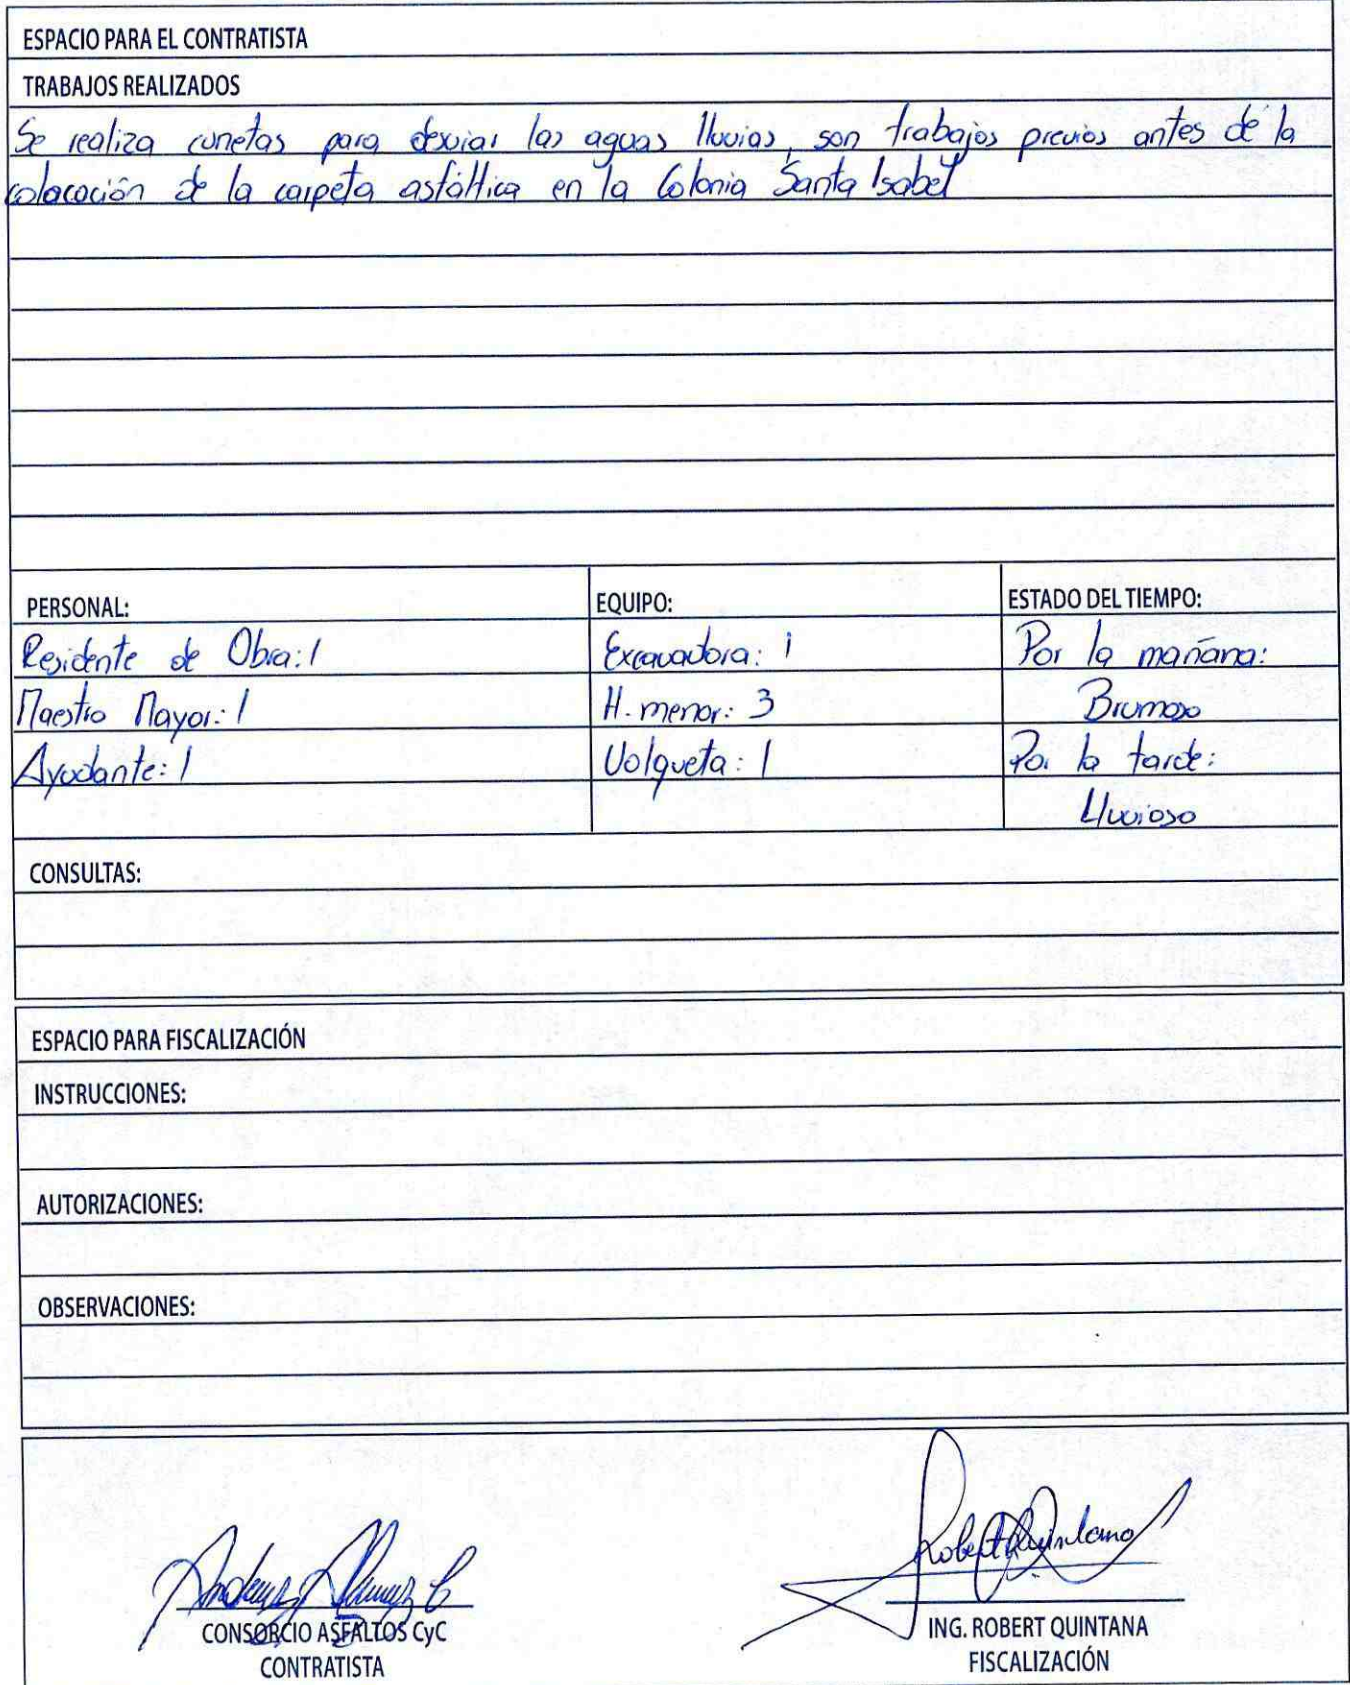 ESPACIO PARA EL CONTRATISTA
TRABAJOS REALIZADOS
Se realiza cunetas para desviar las aguas lluvias, son trabajos previos antes de la
colocación de la carpeta asfáltica en la Colonia Santa Isabel
PERSONAL:
Residente de Obra: 1
Maestro Mayor: 1
Ayudante: 1
EQUIPO:
Excavadora: 1
H. menor: 3
Volqueta: 1
ESTADO DEL TIEMPO:
Por la mañana:
Brumoso
Por la tarde:
Lluvioso
CONSULTAS:
ESPACIO PARA FISCALIZACIÓN
INSTRUCCIONES:
AUTORIZACIONES:
OBSERVACIONES:
Robert Quintana
CONSORCIO ASFALTOS CyC
CONTRATISTA
ING. ROBERT QUINTANA
FISCALIZACIÓN